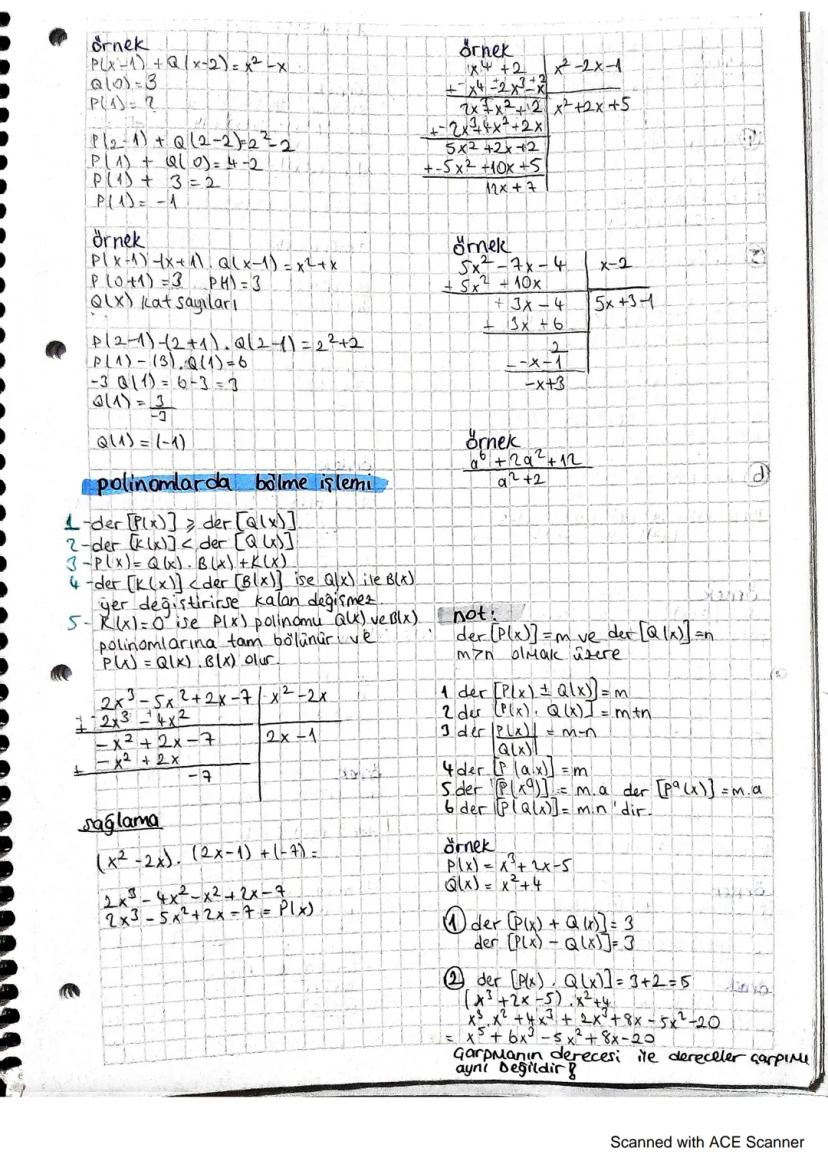 örnek
P(x-1) + Q(x-2) = x² - x
Q(0) = 3
P(1) = ?
P(2-1) + Q(2-2) = 2² - 2
P(1) + Q(0) = 4 - 2
P(1) + 3 = 2
P(1) = -1
örnek
P(x-1) -(x+1) . Q(x-1) = x² + x
P(0+1) = 3 P(1) = 3
Q(x) katsayıları
P(2-1) -(2+1) . Q(2-1) = 2² + 2
P(1) - (3) . Q(1) = 6
-3 Q(1) = 6 - 3 = 3
Q(1) = 3
-3
Q(1) = (-1)
polinomlarda bölme işlemi
1 -der [P(x)] ≥ der [Q(x)]
2 -der [K(x)] < der [Q(x)]
3 -P(x) = Q(x) . B(x) + K(x)
4 -der [K(x)] < der [B(x)] ise Q(x) ile B(x)
yer değiştirirse kalan değişmez
5 - K(x) = 0 ise P(x) polinomu Q(x) ve B(x)
polinomlarına tam bölünür ve
P(x) = Q(x) . B(x) olur.
2x³ - 5x² + 2x - 7 x² - 2x
2x³ - 4x²
-x² + 2x - 7 2x - 1
-x² + 2x
-7
sağlama
(x² - 2x) . (2x-1) + (-7) =
2x³ - 4x² - x² + 2x - 7
2x³ - 5x² + 2x - 7 = P(x)
örnek
x⁴ + 2 x² - 2x - 1
2x³ + x² + 2 x² + 2x + 5
5x² + 2x + 2
+ -5x² + 10x + 5
12x + 7
örnek
5x² - 7x - 4 x - 2
+ 5x² + 10x
+ 3x - 4 5x + 3 - 1
+ 3x + 6
2
-x - 1
-x + 3
örnek
a⁶ + 2a² + 12
a² + 2
not:
der [P(x)] = m ve der [Q(x)] = n
m > n olmak üzere
1 der [P(x) ± Q(x)] = m
2 der [P(x) . Q(x)] = m+n
3 der [P(x)] = m-n
[Q(x)]
4 der [P(a.x)] = m
5 der [P(xᵃ)] = m.a der [Pᵃ(x)] = m.a
6 der [P(Q(x)] = m.n 'dir.
örnek
P(x) = x³ + 2x - 5
Q(x) = x² + 4
1 der [P(x) + Q(x)] = 3
der [P(x) - Q(x)] = 3
2 der [P(x) . Q(x)] = 3+2 = 5
(x³ + 2x - 5) . x² + 4
x³ . x² + 4x³ + 2x³ + 8x - 5x² - 20
= x⁵ + 6x³ - 5x² + 8x - 20
Çarpmanın derecesi ile dereceler çarpımı
aynı Değildir!
Scanned with ACE Scanner